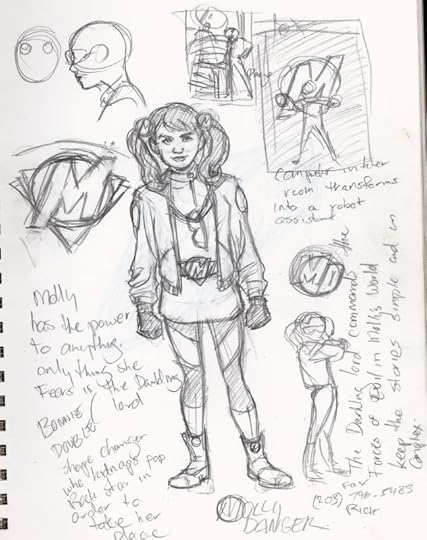 Computer in her
room transforms
into a robot
assistant
M
M
M
Molly
has the power
to anything.
only thing she
Fears is the Darkling
lord
BONNIE/
DOUBLE
shape changer
who kidnaps Pop
Rock star in
order to
take her
place
The Darkling lord commands the
Forces of Evil in Molly's World
keep the stories simple and un
complex.
Fax
(203) 796-5483
Rich
MOLLY
DANGER